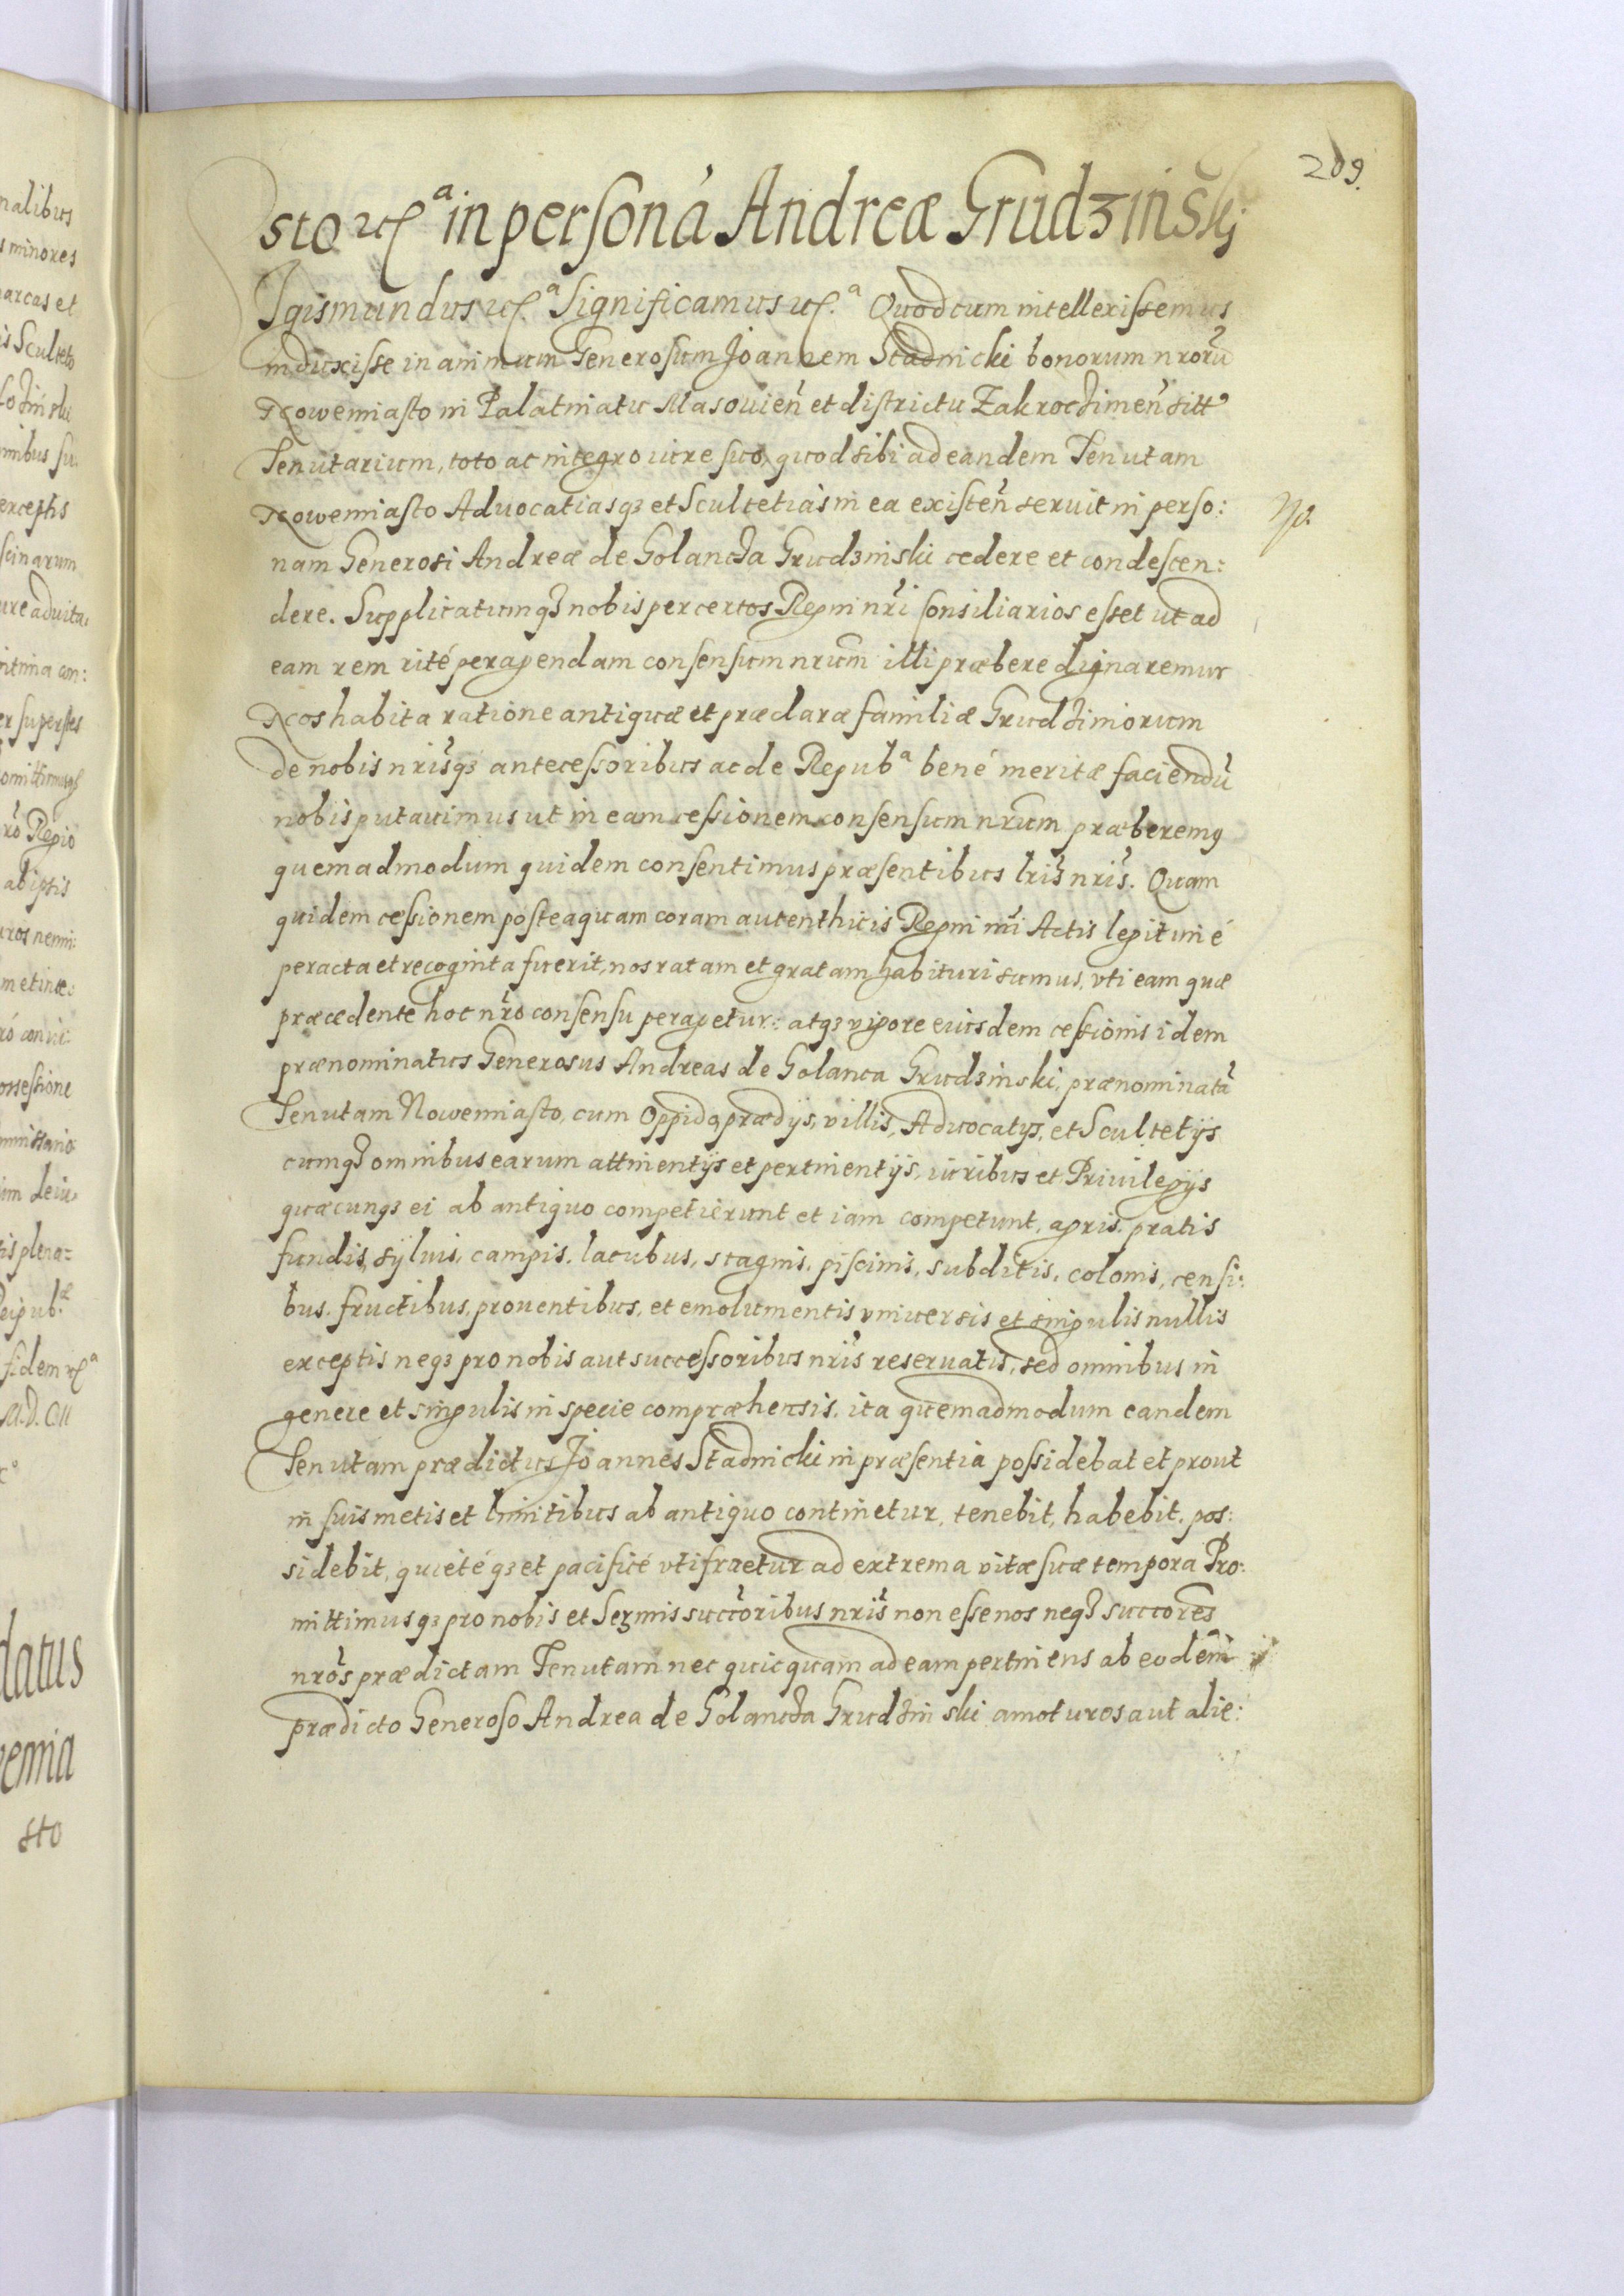 209.
sto etc.ª in personá Andreæ Grudziński
Sigismundus etc.ª Significamus etc.ª Quod cum intellexissemus
induxisse in animum Generosum Joannem Stadnicki bonorum nrorũ
Nowemiasto in Palatinatu Masouień et districtu Zakrocżimeń sitt'
Tenutarium, toto ac integro iure suo, quod sibi ad eandem Tenutam
Nowemiasto Aduocatiasqȝ et Scultetias in ea existeń seruit in perso:
nam Generosi Andreæ de Golancża Grudzinski cedere et condescen:
dere. Supplicatumqȝ nobis per certos Regni nrĩ Consiliarios esset ut ad
eam rem rité peragendam consensum nrum̃ illi præbere dignaremur
Nos habita ratione antiquæ et præclaræ familiæ Grudżiniorum
de nobis nrisq̃ȝ antecessoribus ac de Repubª bené meritæ faciendũ
nobis putauimus ut in eam cessionem consensum nrum̃ præberemꝰ
quemadmodum quidem consentimus præsentibus lris̃ nris̃. Quam
quidem cessionem posteaquam coram autenthicis Regni nrĩ Actis legitimé
peracta et recognita fuerit, nos ratam et gratam habituri sumus, vti eam quæ
præcedente hoc nrõ consensu peragetur: atqȝ vigore eiusdem cessionis idem
prænominatus Generosus Andreas de Golanca Grudzinski, prænominatã
Tenutam Nowemiasto, cum Oppido, prædijs, villis, Aduocatijs, et Scultetijs
cumqȝ omnibus earum attinentijs et pertinentijs, iuribus et Priuilegijs
quæcunqȝ ei ab antiquo competierunt et iam competunt, agris, pratis
fundis, syluis, campis, lacubus, stagnis, piscinis, subditis, colonis, censi:
bus, fructibus, prouentibus, et emolumentis vniuersis et singulis nullis
exceptis neqȝ pro nobis aut successoribus nris̃ reseruatis, sed omnibus in
genere et singulis in specie compræhensis, ita quemadmodum eandem
Tenutam prædictus Joannes Stadnicki in præsentia possidebat et prout
in suis metis et limitibus ab antiquo continetur, tenebit, habebit, pos:
sidebit, quietéqȝ et pacificé vtifruetur ad extrema vitæ suæ tempora Pro:
mittimusqȝ pro nobis et Sermis succõribus nris̃ non esse nos neqȝ succores
nrõs prædictam Tenutam nec quicquam ad eam pertinens ab eodem
prædicto Generoso Andrea de Golancża Grudżinski amoturos aut alie: